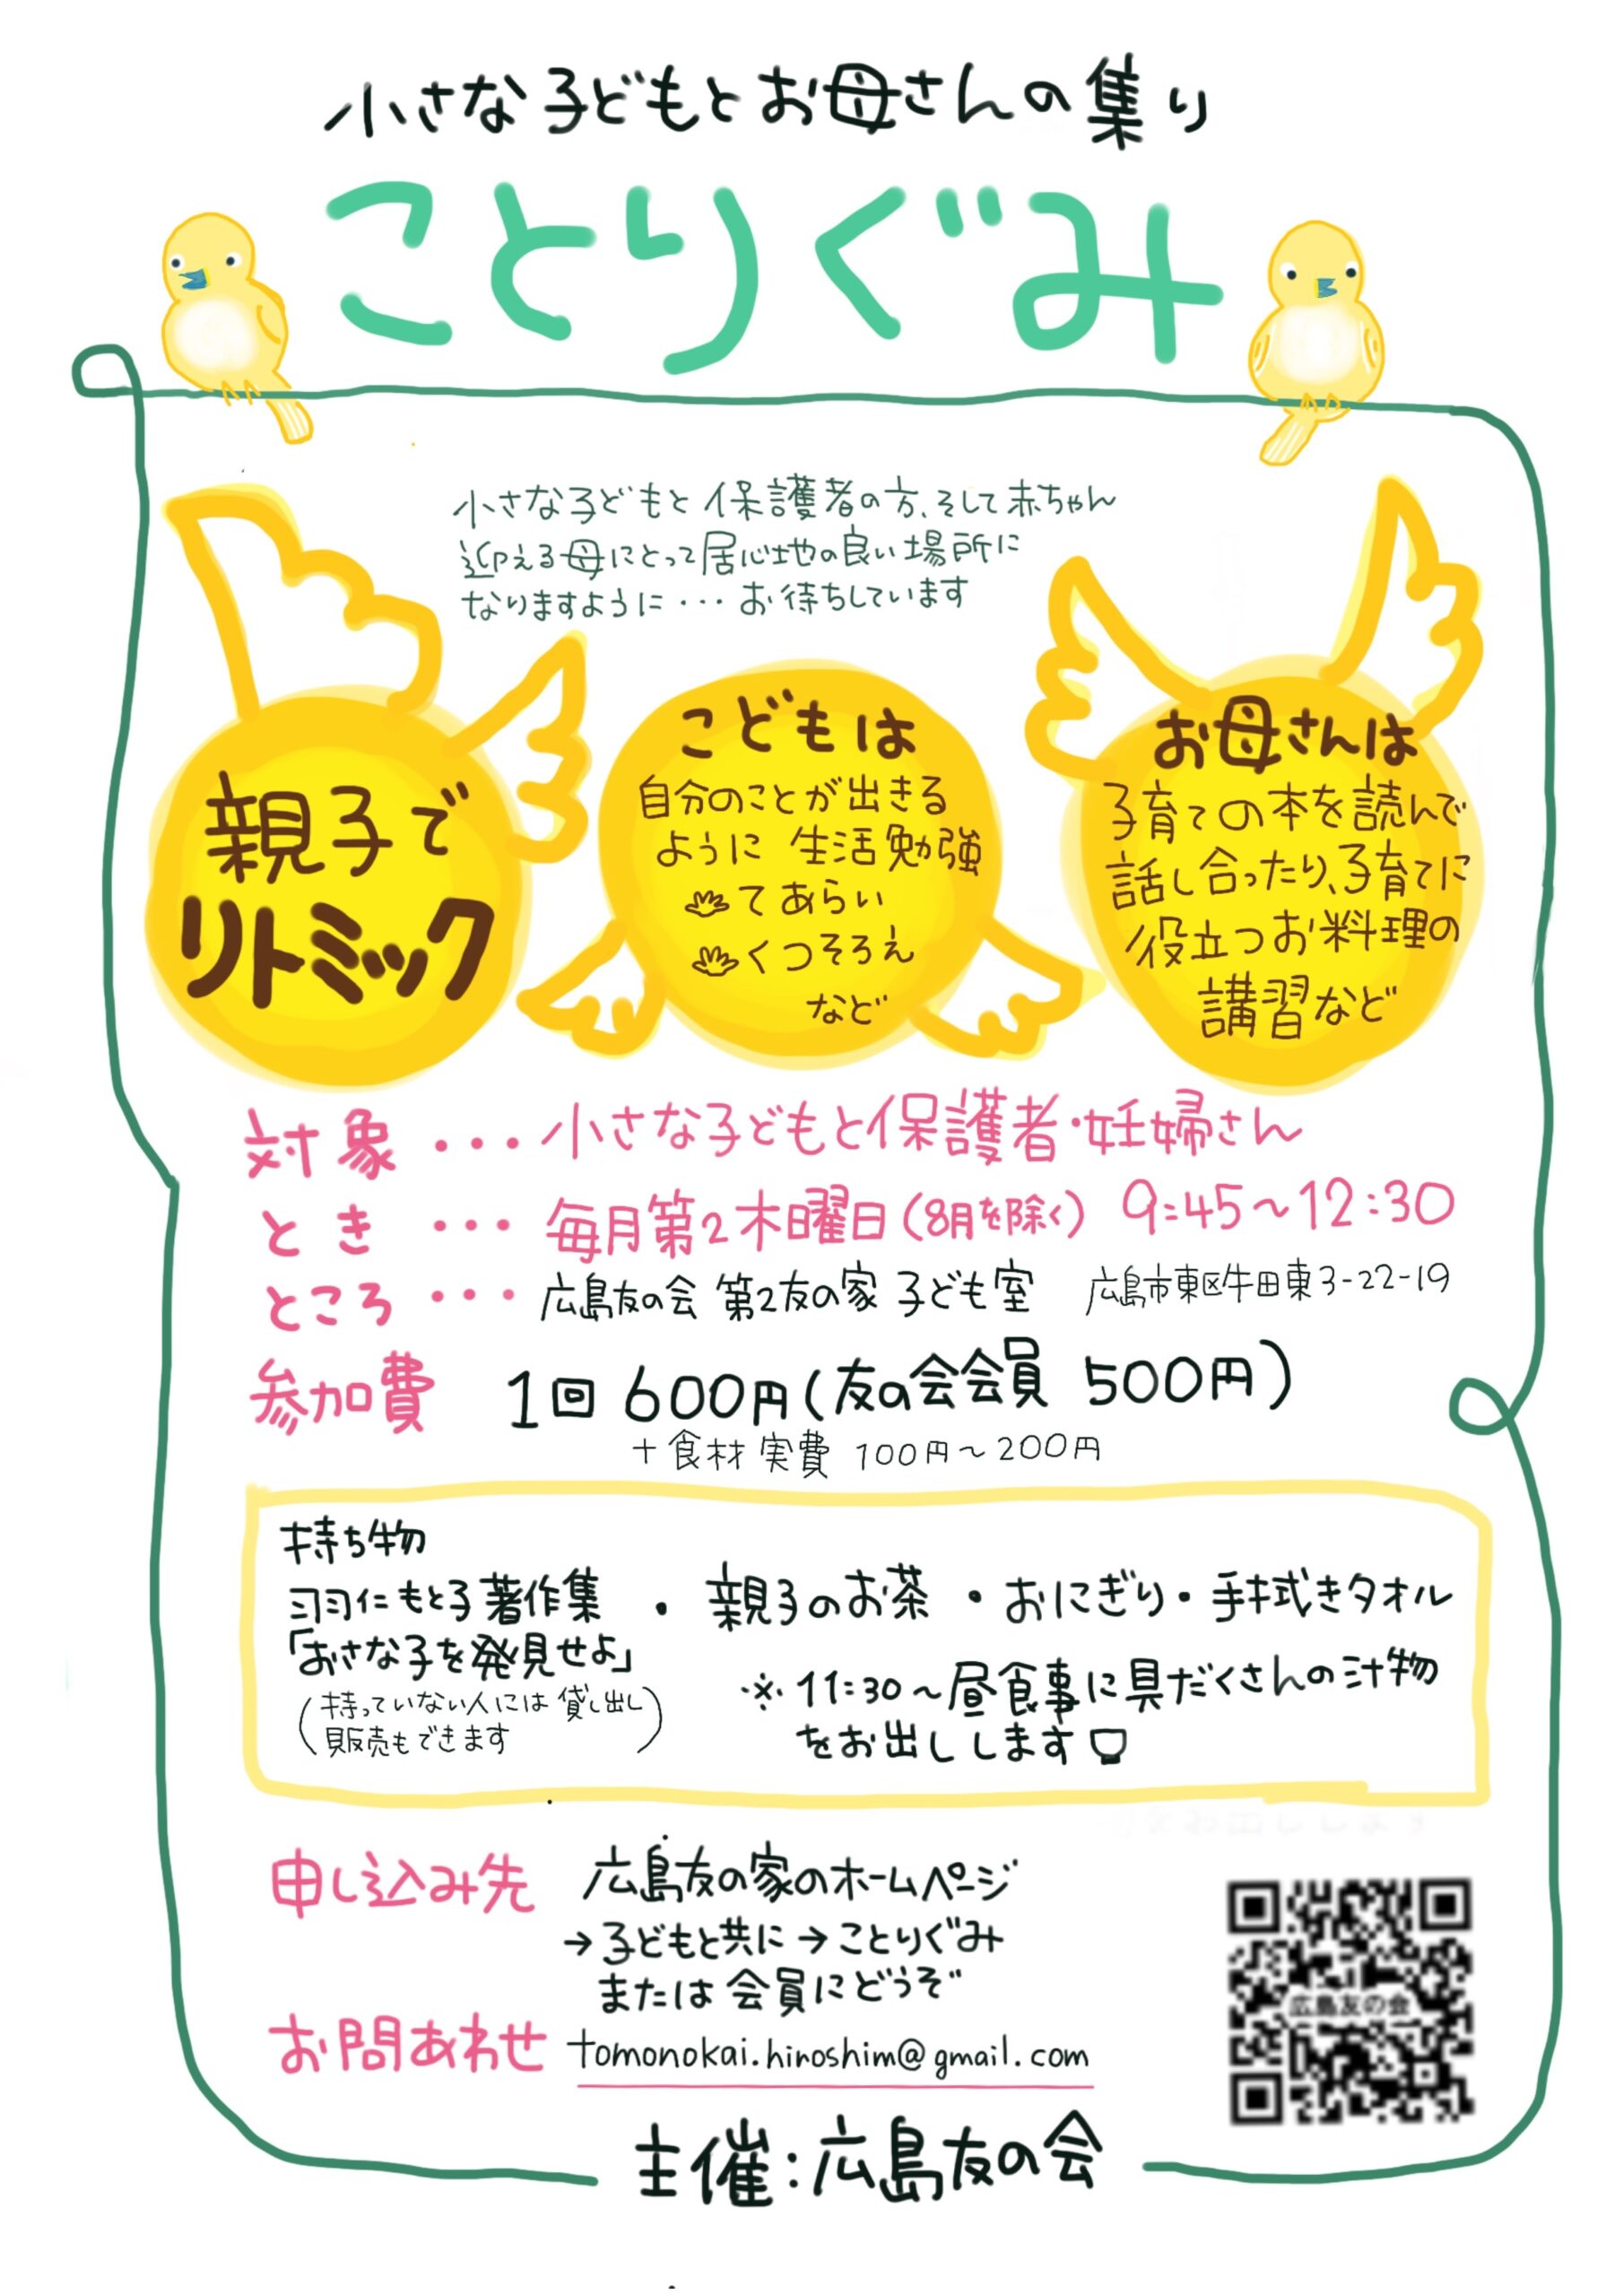 小さな子どもとお母さんの集り
ことりぐみ
小さな子どもと保護者の方、そして赤ちゃん
迎える母にとって居心地の良い場所に
なりますように・・・お待ちしています
親子で
リトミック
こどもは
自分のことが出きる
ように 生活勉強
てあらい
くつそろえ
など
お母さんは
子育ての本を読んで
話し合ったり、子育てに
役立つお料理の
講習など
対象・・・小さな子どもと保護者・妊婦さん
とき・・・毎月第2木曜日(8月を除く) 9:45~12:30
ところ・・・広島友の会 第2友の家 子ども室 広島市東区牛田東3-22-19
参加費 1回 600円(友の会会員 500円)
+食材実費 100円~200円
持ち物
羽仁もと子著作集
「おさな子を発見せよ」
(持っていない人には貸し出し
販売もできます)
・親子のお茶・おにぎり・手拭きタオル
※11:30~昼食事に具だくさんの汁物
をお出しします
申し込み先 広島友の家のホームページ
→子どもと共に→ことりぐみ
または会員にどうぞ
お問あわせ tomonokai.hiroshim@gmail.com
広島友の会
主催:広島友の会